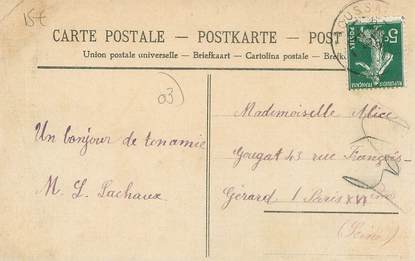 15€
CARTE POSTALE – POSTKARTE – POST
Union postale universelle – Briefkaart – Cartolina postale –
5c
POSTES
REPUBLIQUE FRANÇAISE
03
Un bonjour de ton amie
M. L. Pachaux
Mademoiselle Alice
Gougat 43 rue François-
Gérard Paris XVI
(Seine)